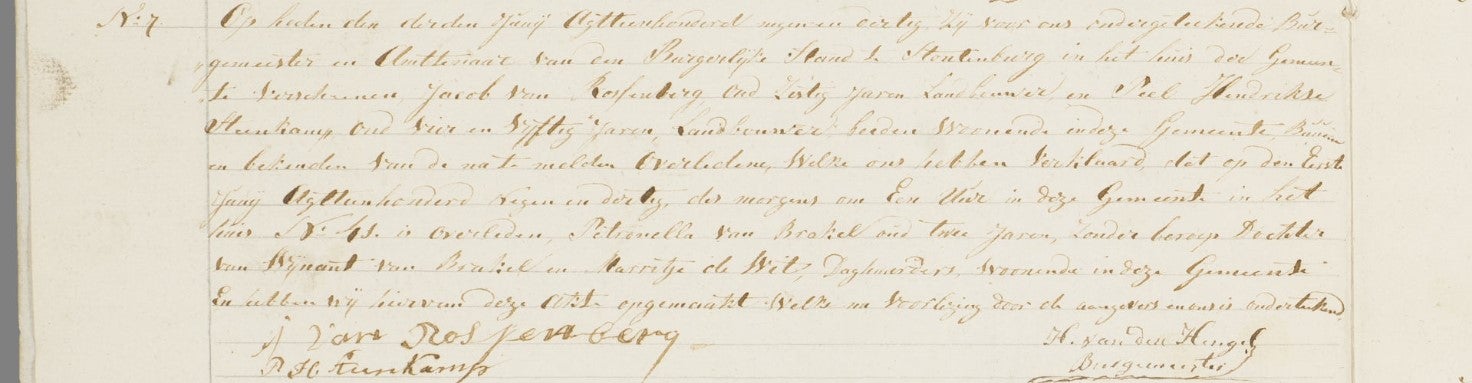 No 7. Op heden den derden Junij Agttienhonderd negen en dertig, Zij voor ons ondergeteekende Bur-
gemeester en Amttenaar van den Burgerlijke Stand te Stoutenburg in het huis der Gemeen-
te Verschenen, Jacob van Rossenberg, oud Zestig Jaren Landbouwer, en Peel Hendrikse
Steenkamp, oud vier en Vijftig Jaren, Landbouwer beiden Woonende indeze Gemeente
en bekenden van de na te melden Overledene, Welke ons hebben Verklaard, dat op den Eerste
Junij Agttienhonderd Negen en dertig, des morgens om Een Uur in deze Gemeente in het
huis No is overleden, Petronella van Brakel oud twee Jaren, Zonder beroep Dochter
van Wijnant van Brakel en Marritje de Wit, Daghuurders, Woonende indeze Gemeente
En hebben wij hiervan deze Akte opgemaakt Welke na Voorlezing door de aangevers en ons is onderteekend
J van Rossenberg H. van den Hengel
P. H. Steenkamp Burgemeester